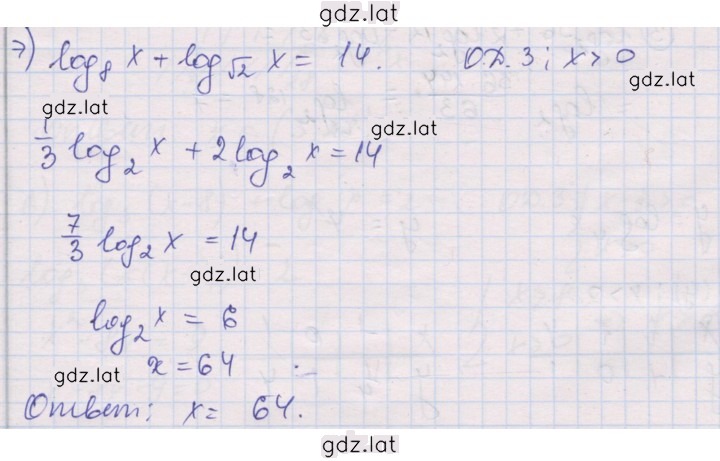 gdz.lat
7) log₈ x + log_√2 x = 14. О.Д.З; x > 0
gdz.lat
gdz.lat
gdz.lat
1/3 log₂ x + 2 log₂ x = 14
7/3 log₂ x = 14
gdz.lat
log₂ x = 6
x = 64
gdz.lat
Ответ: x = 64.
gdz.lat